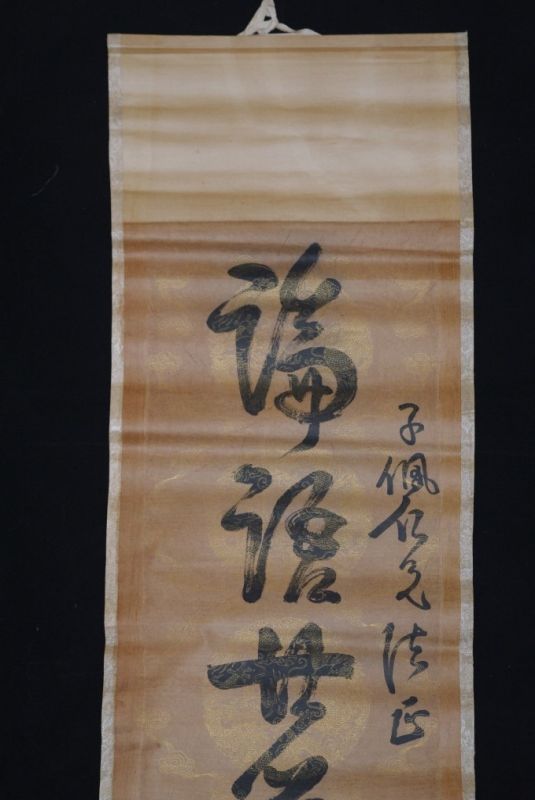 子佩仁兄法正
論語